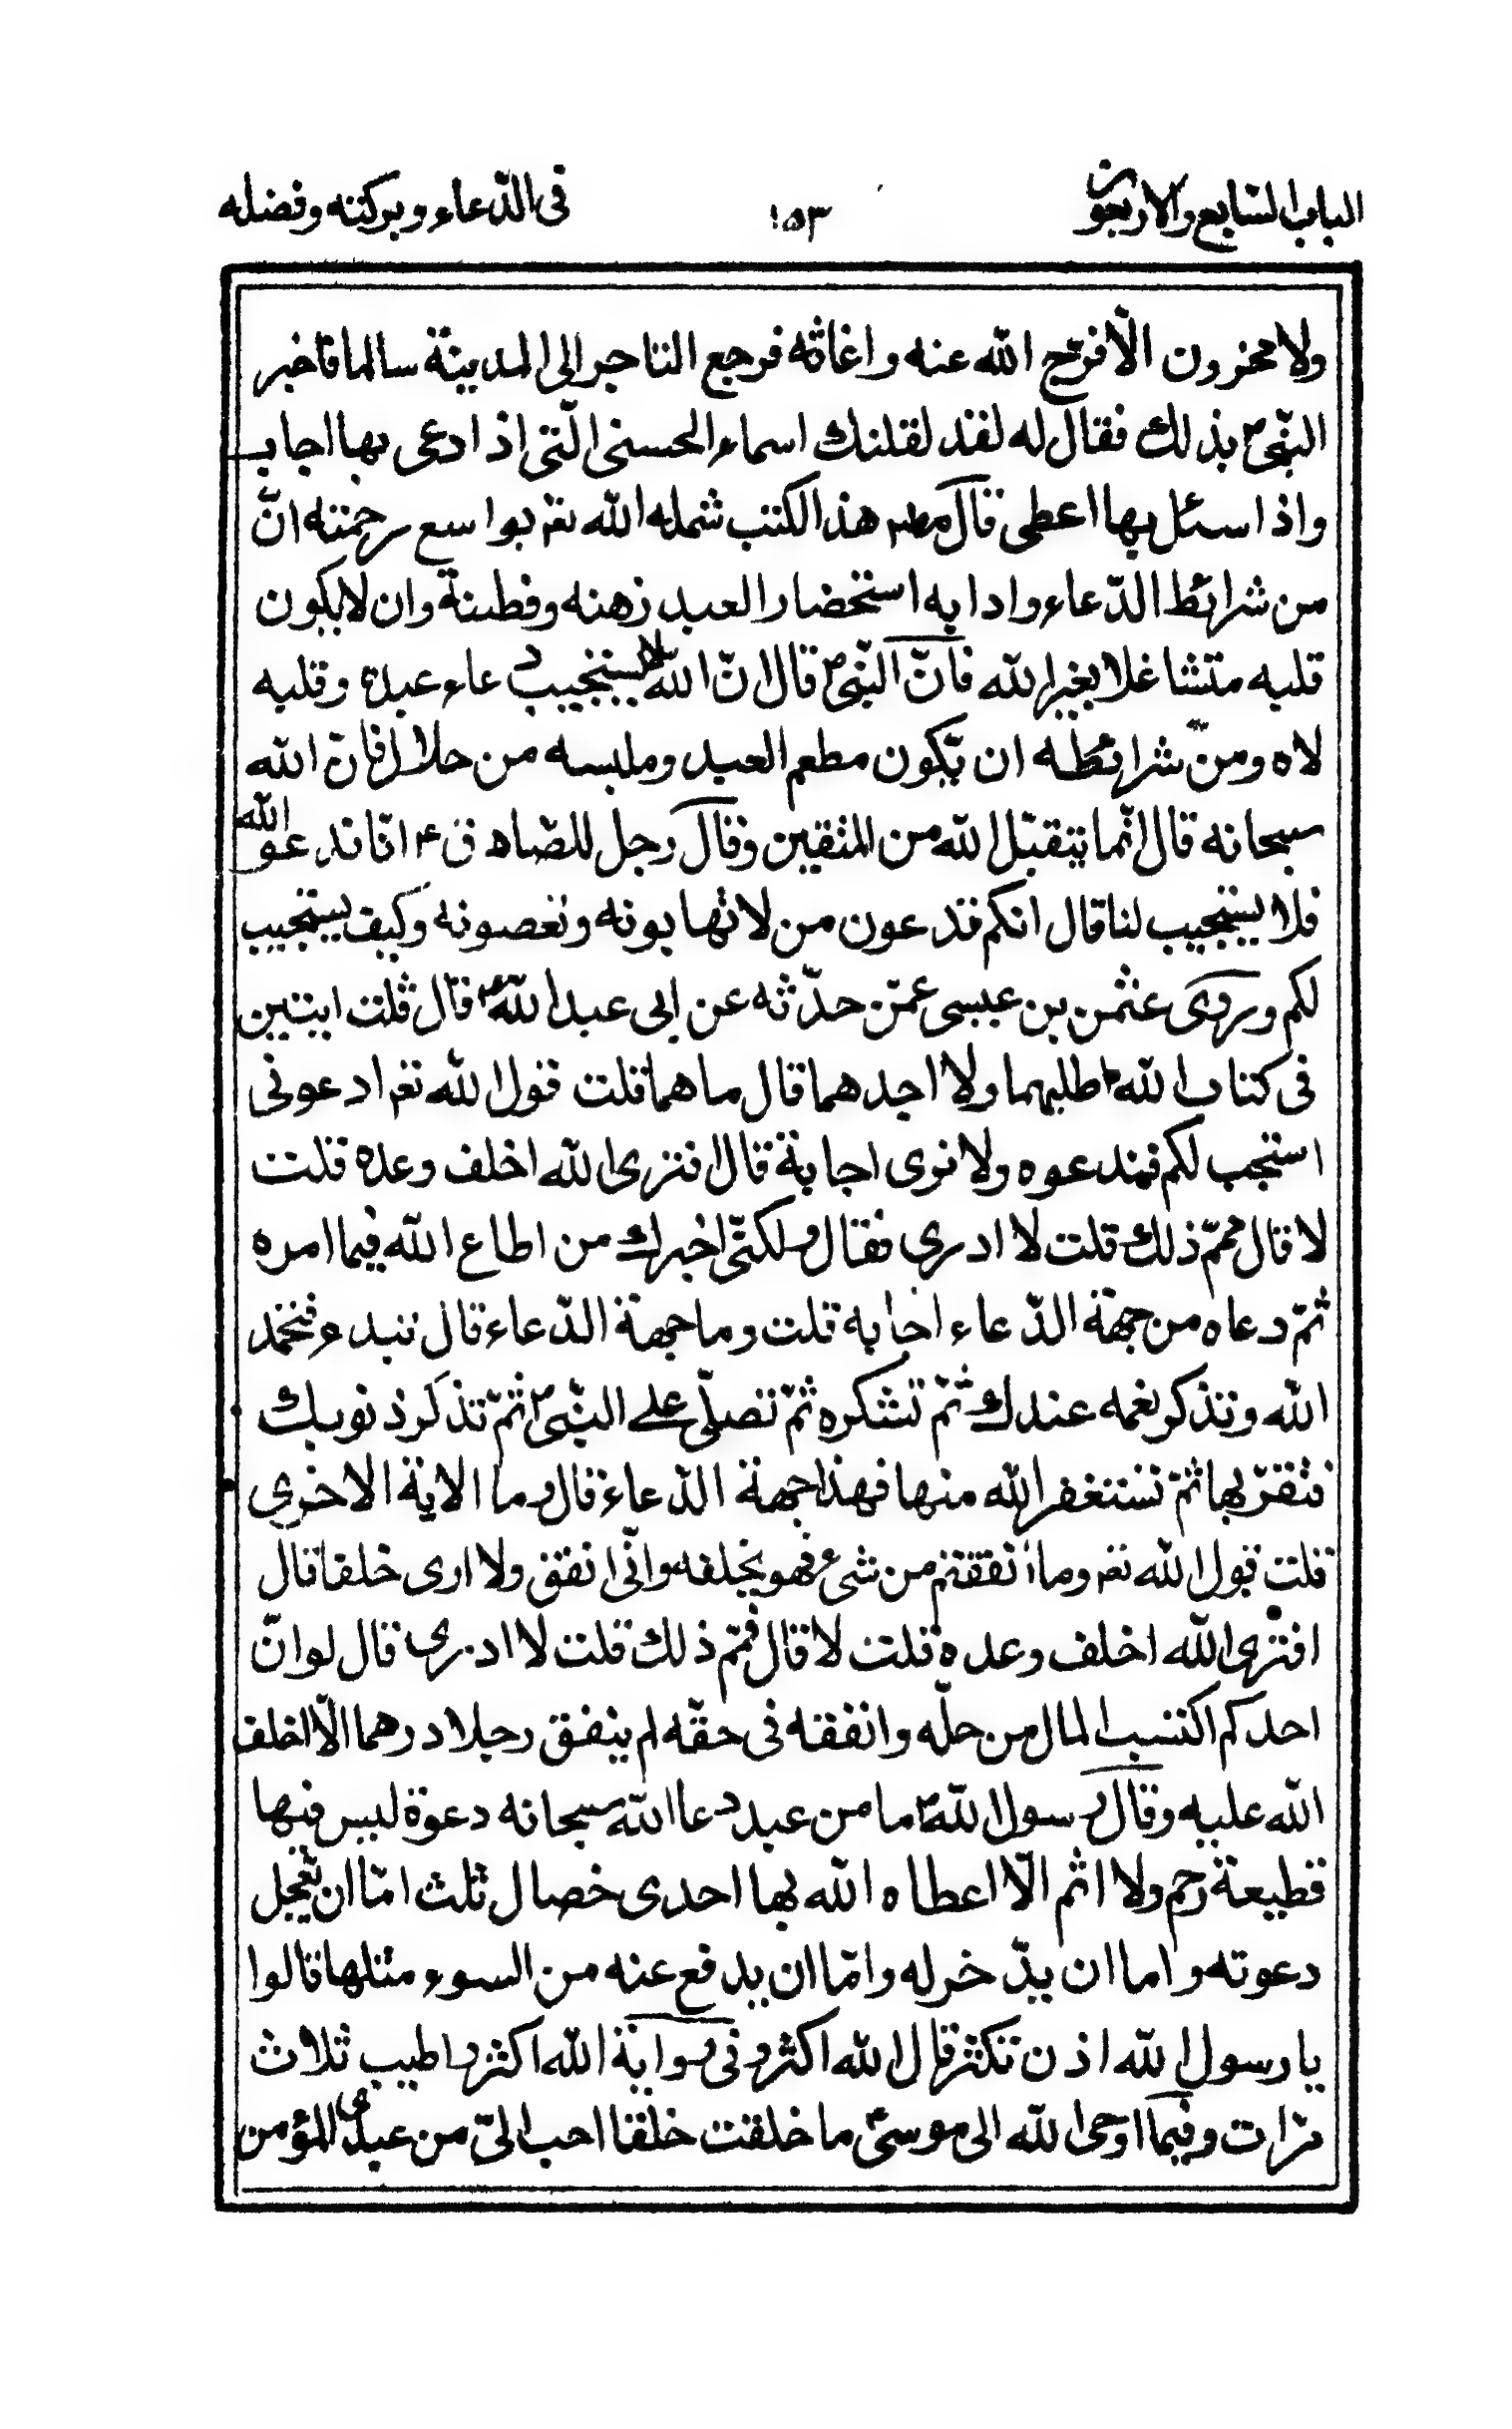 الباب السابع والاربعون
١٥٣
فی الدّعاء وبرکته وفضله
ولا محزون الّا فرّج الله عنه واغاثه فرجع التاجر الی المدینة سالما فاخبر
النبّی ص بذلك فقال له لقد لقنك اسماء الحسنی الّتی اذا دعی بها اجاب
واذا سئل بها اعطی قال مصـ هذا الکتب شمله الله تعـ بواسع رحمته انّ
من شرائط الدّعاء وادابه استحضار العبد زهنه وفطنة وان لا یکون
قلبه متشاغلا بغیر الله فانّ النّبیّ ص قال انّ الله لا یستجیب دعاء عبده وقلبه
لاه ومن شرائطه ان یکون مطعم العبد وملبسه من حلال فانّ الله
سبحانه قال انّما یتقبّل الله من المتقین وقال رجل للصّادق ع انّا ندعو الله
فلا یستجیب لنا قال انکم تدعون من لا تهابونه وتعصونه وکیف یستجیب
لکم وروی عثمن بن عیسی عمّن حدّثه عن ابی عبد الله ع قال قلت ایتین
فی کتاب الله اطلبهما ولا اجدهما قال ما هما قلت قول الله تعـ ادعونی
استجب لکم فندعوه ولا نری اجابة قال افتری الله اخلف وعده قلت
لا قال فممّ ذلك قلت لا ادری فقال ولکنّی اخبرك من اطاع الله فیما امره
ثمّ دعاه من جهة الدّعاء اجابه قلت وما جهة الدّعاء قال تبدء فتحمد
الله وتذکر نعمه عندك ثمّ تشکره ثمّ تصلّی علی النبّی ص ثمّ تذکر ذنوبك
فتقرّ بها ثمّ تستغفر الله منها فهذا جهة الدّعاء قال وما الایة الاخری
قلت قول الله تعـ وما انفقتم من شیء فهو یخلفه وانّی انفق ولا اری خلفا قال
افتری الله اخلف وعده قلت لا قال فممّ ذلك قلت لا ادری قال لو انّ
احدکم اکتسب المال من حلّه وانفقه فی حقّه لم ینفق رجلا درهما الّا اخلف
الله علیه وقال رسول الله ص ما من عبد دعا الله سبحانه دعوة لیس فیها
قطیعة رحم ولا اثم الّا اعطاه الله بها احدی خصال ثلث امّا ان یعجل
دعوته واما ان یدّخر له وامّا ان یدفع عنه من السوء مثلها قالوا
یا رسول الله اذن نکثر قال الله اکثر وفی روایة الله اکثر واطیب ثلاث
مرّات وفیما اوحی الله الی موسی ع ما خلقت خلقا احب الیّ من عبدی المؤمن